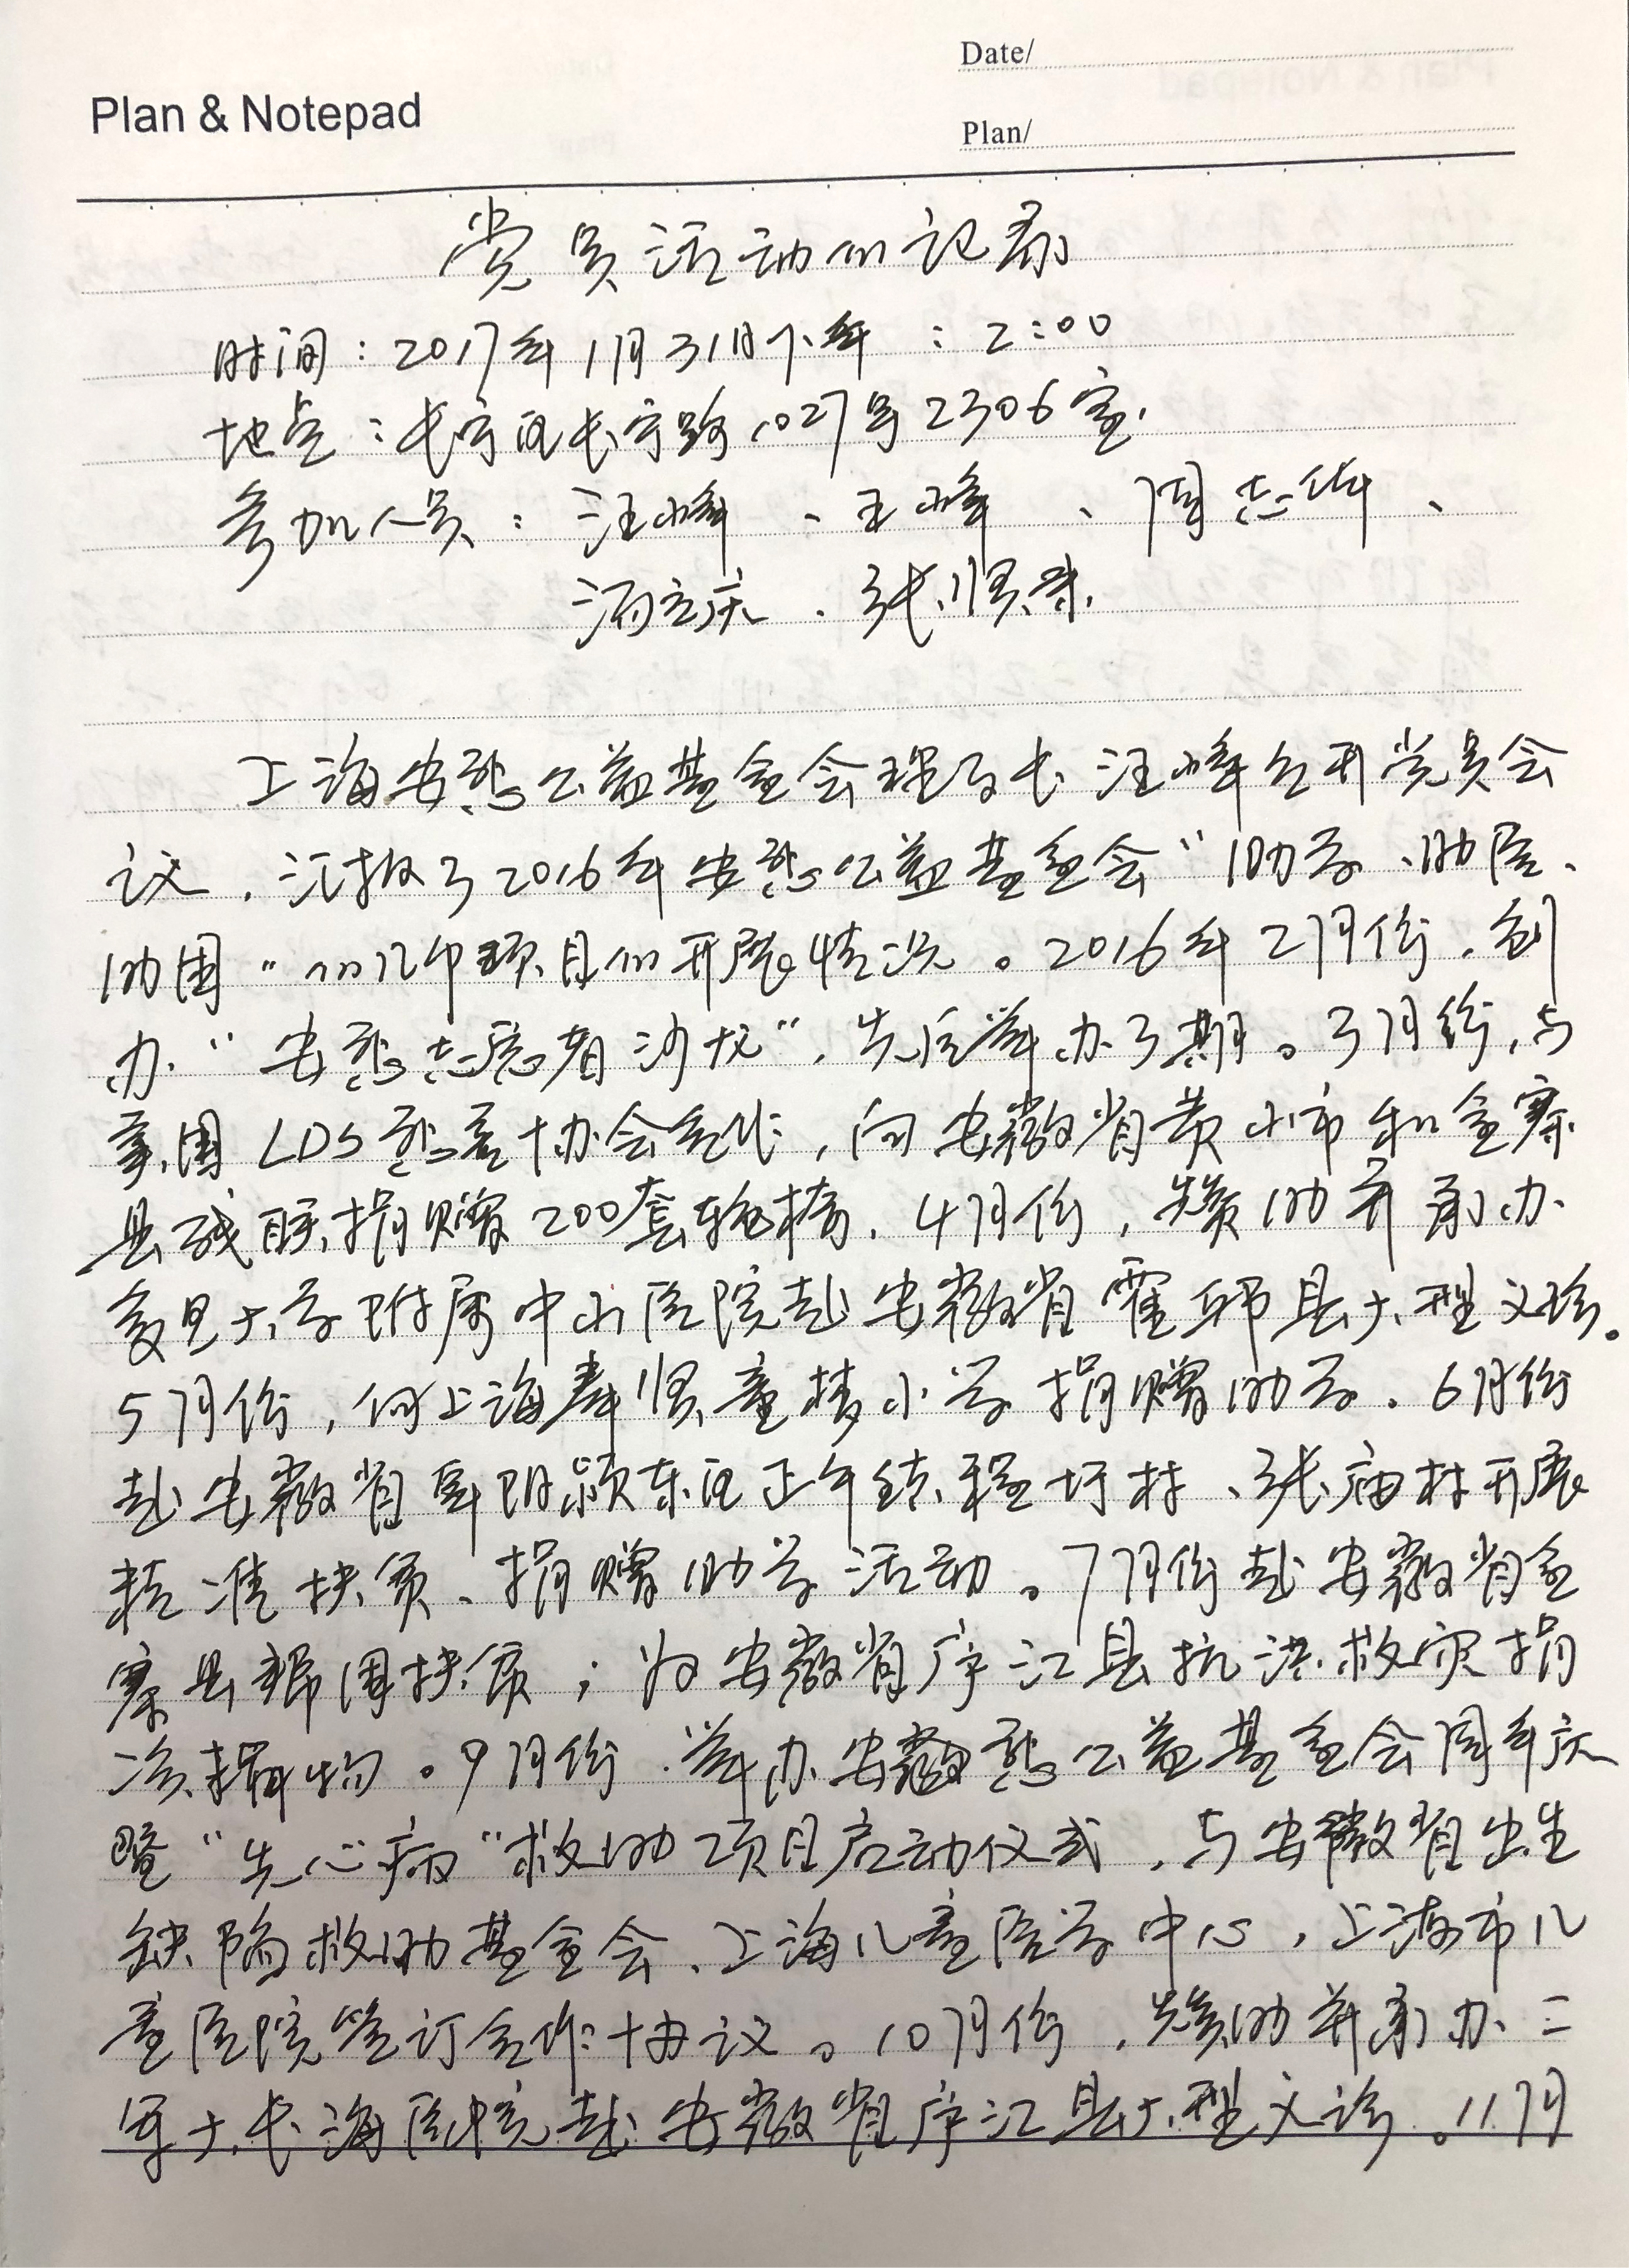 Date/
Plan & Notepad
Plan/
党员活动的记录
时间:2017年1月31日下午:2:00
地点:长宁区长宁路1027号2306室.
参加人员:汪峰、王峰、周志华、
汤立庆、张贤彬.
上海安慈公益基金会理事长汪峰召开党员会
议,汇报了2016年安慈公益基金会"助学、助医、
助困"的几项项目的开展情况。2016年2月份,创
办"安慈志愿者沙龙",先后举办3期。3月份,与
美国LDS慈善协会合作,向安徽省黄山市和金寨
县残联捐赠200套轮椅.4月份,赞助并承办
复旦大学附属中山医院赴安徽省霍邱县大型义诊。
5月份,向上海奉贤童梦小学捐赠助学.6月份
赴安徽省阜阳颍东区正午镇程圩村、张庙村开展
精准扶贫、捐赠助学活动。7月份赴安徽省金
寨县帮困扶贫;为安徽省庐江县抗洪救灾捐
资捐物。9月份.举办安慈公益基金会周年庆
暨"先心病"救助项目启动仪式,与安徽省出生
缺陷救助基金会、上海儿童医学中心,上海市儿
童医院签订合作协议。10月份,赞助并承办二
军大长海医院赴安徽省庐江县大型义诊。11月